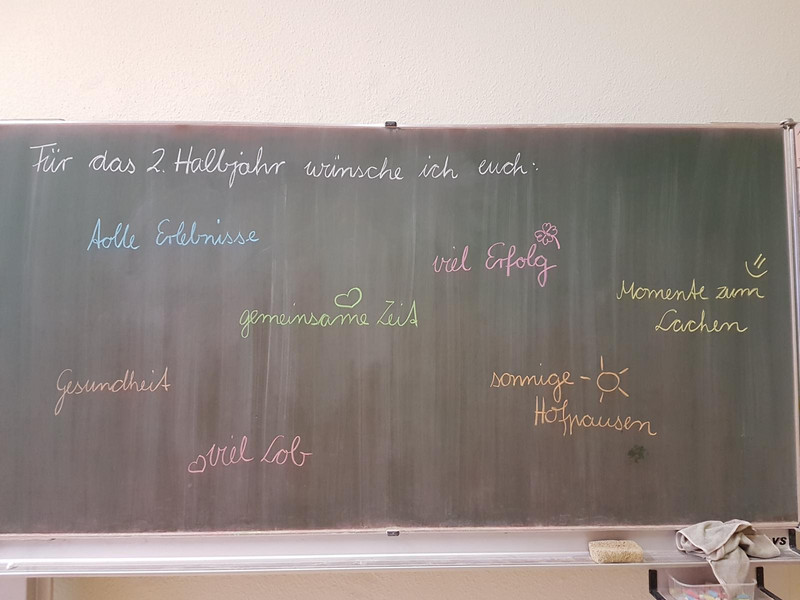 Für das 2. Halbjahr wünsche ich euch:
tolle Erlebnisse
viel Erfolg
gemeinsame Zeit
Momente zum
Lachen
Gesundheit
sonnige
Hofpausen
viel Lob
VS